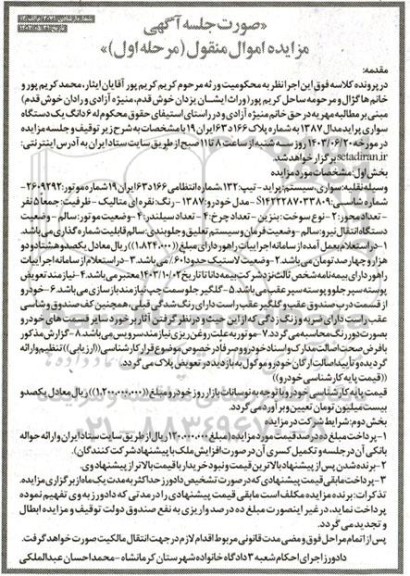 شماره آرشاخص: ۲۰۷۱/م الف/۱۲
تاریخ: ۱۴۰۳/۰۵/۳۱
«صورت جلسه آگهی
مزایده اموال منقول (مرحله اول)»
مقدمه:
در پرونده کلاسه فوق این اجرا نظر به محکومیت ورثه مرحوم کریم کریم پور آقایان ایثار، محمد کریم پور و
خانم ها گژال و مرحومه ساحل کریم پور (وراث ایشان یزدان خوش قدم، منیژه آزادی و رادان خوش قدم)
مبنی بر مطالبه مهریه در حق خانم منیژه آزادی و در راستای استیفای حقوق محکوم له ۶ دانگ یک دستگاه
سواری پراید مدل ۱۳۸۷ به شماره پلاک ۱۶۶د۶۳ ایران ۱۹ با مشخصات به شرح زیر توقیف و جلسه مزایده
در مورخه ۱۴۰۳/۰۶/۲۰ روز سه شنبه از ساعت ۸ تا ۱۱ صبح از طریق سایت ستاد ایران به آدرس اینترنتی:
setadiran.ir برگزار خواهد شد.
بخش اول: مشخصات مورد مزایده
وسیله نقلیه: سواری، سیستم: پراید - تیپ: ۱۳۲، شماره انتظامی ۱۶۶د۶۳ ایران ۱۹ شماره موتور: ۲۶۰۹۲۹۲-
شماره شاسی: S۱۴۲۲۲۸۷۰۳۳۸۰۹- مدل خودرو: ۱۳۸۷- رنگ: نقره ای متالیک - ظرفیت: جمعا ۵ نفر
- تعداد محور: ۲- نوع سوخت: بنزین - تعداد چرخ: ۴- تعداد سیلندر: ۴- وضعیت موتور: سالم - وضعیت
دستگاه انتقال نیرو: سالم - وضعیت فرمان و سیستم تعلیق و جلوبندی: سالم قابلیت شماره گذاری می باشد.
۱- در استعلام بعمل آمده از سامانه اجراییات راهور دارای مبلغ ((۱.۸۲۴.۰۰۰)) ریال معادل یکصد و هشتاد و دو
هزار و چهارصد تومان می باشد. ۲- وضعیت لاستیک حدودا ۶۰٪ می باشد. ۳- در استعلام از سامانه اجراییات
راهور دارای بیمه نامه شخص ثالث نزد شرکت بیمه دانا تا تاریخ ۱۴۰۳/۱۰/۰۲ معتبر می باشد. ۴- نیازمند تعویض
پوسته سپر جلو و پوسته سپر عقب می باشد. ۵- گلگیر جلو سمت چپ نیازمند بازسازی می باشد. ۶- خودرو
از قسمت درب صندوق عقب و گلگیر عقب راست دارای رنگ شدگی قبلی، همچنین کف صندوق و شاسی
عقب راست دارای ضربه و رنگ زدگی که از این حیث و در نظر گرفتن آثار برخورد سایر قسمت های خودرو
بصورت دور رنگ محاسبه می گردد. ۷- موتور به علت روغن ریزی نیازمند سرویس می باشد. ۸- گزارش مذکور
با فرض صحت اصالت مدارک و اسناد خودرو و صرفا در خصوص موضوع قرار کارشناسی ((ارزیابی)) تنظیم و ارائه
گردیده و تأیید اصالت ارگان خودرو موکول به بازدید در تعویض پلاک می گردد.
((قیمت پایه کارشناسی خودرو))
قیمت پایه کارشناسی خودرو با توجه به نوسانات بازار روز خودرو مبلغ ((۱.۲۰۰.۰۰۰.۰۰۰)) ریال معادل یکصد و
بیست میلیون تومان تعیین و برآورد می گردد.
بخش دوم: شرایط شرکت در مزایده
۱- پرداخت مبلغ ده درصد قیمت مورد مزایده (مبلغ ۱۲۰.۰۰۰.۰۰۰ ریال از طریق سایت ستاد ایران و ارائه حواله
بانکی آن در جلسه و تکمیل کسری آن در صورت افزایش ملک با پیشنهاد شرکت کنندگان).
۲- برنده شدن پس از پیشنهاد بالاترین قیمت و نبود خریدار با قیمت بالاتر از پیشنهاد وی.
۳- پرداخت مابقی قیمت پیشنهادی که در صورت تشخیص دادورز حداکثر به مدت یک ماه از برگزاری مزایده.
تذکرات: برنده مزایده مکلف است مابقی قیمت پیشنهادی را در مدتی که دادورز به وی تفهیم نموده
پرداخت نماید، در غیر اینصورت مبلغ ده درصد واریزی به نفع صندوق دولت توقیف و مزایده ابطال
و تجدید می گردد.
پس از اتمام مراحل فوق و مضی مدت قانونی مربوط اقدام لازم در جهت انتقال مالکیت صورت خواهد گرفت.
دادورز اجرای احکام شعبه ۳ دادگاه خانواده شهرستان کرمانشاه - محمداحسان عبدالملکی
۰۲۱-۸۸۳۴۹۶۷۰-۵